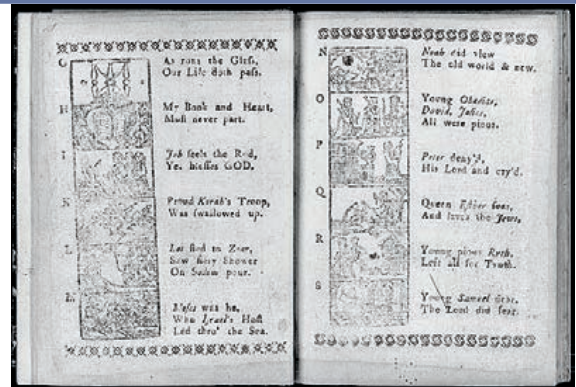 G
As runs the Glass,
Our Life doth pass.
H
My Book and Heart,
Must never part.
Job feels the Rod,
Yet blesses GOD.
K
Proud Korah's Troop,
Was swallowed up.
L
Lot fled to Zoar,
Saw fiery Shower
On Sodom pour.
Moses was he,
Who Israel's Host
Led thro' the Sea.
N
Noah did view
The old world & new.
O
Young Obadias,
David, Josias,
All were pious.
P
Peter deny'd,
His Lord and cry'd.
Q
Queen Esther sues,
And saves the Jews.
R
Young pious Ruth,
Left all for Truth.
S
Young Samuel dear,
The Lord did fear.